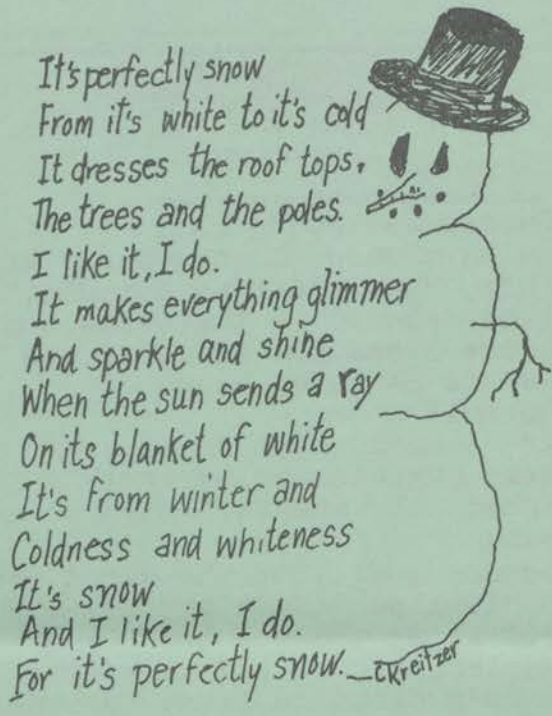 It's perfectly snow
From it's white to it's cold
It dresses the roof tops,
The trees and the poles.
I like it, I do.
It makes everything glimmer
And sparkle and shine
When the sun sends a ray
On its blanket of white
It's from winter and
Coldness and whiteness
It's snow
And I like it, I do.
For it's perfectly snow. — CKreitzer